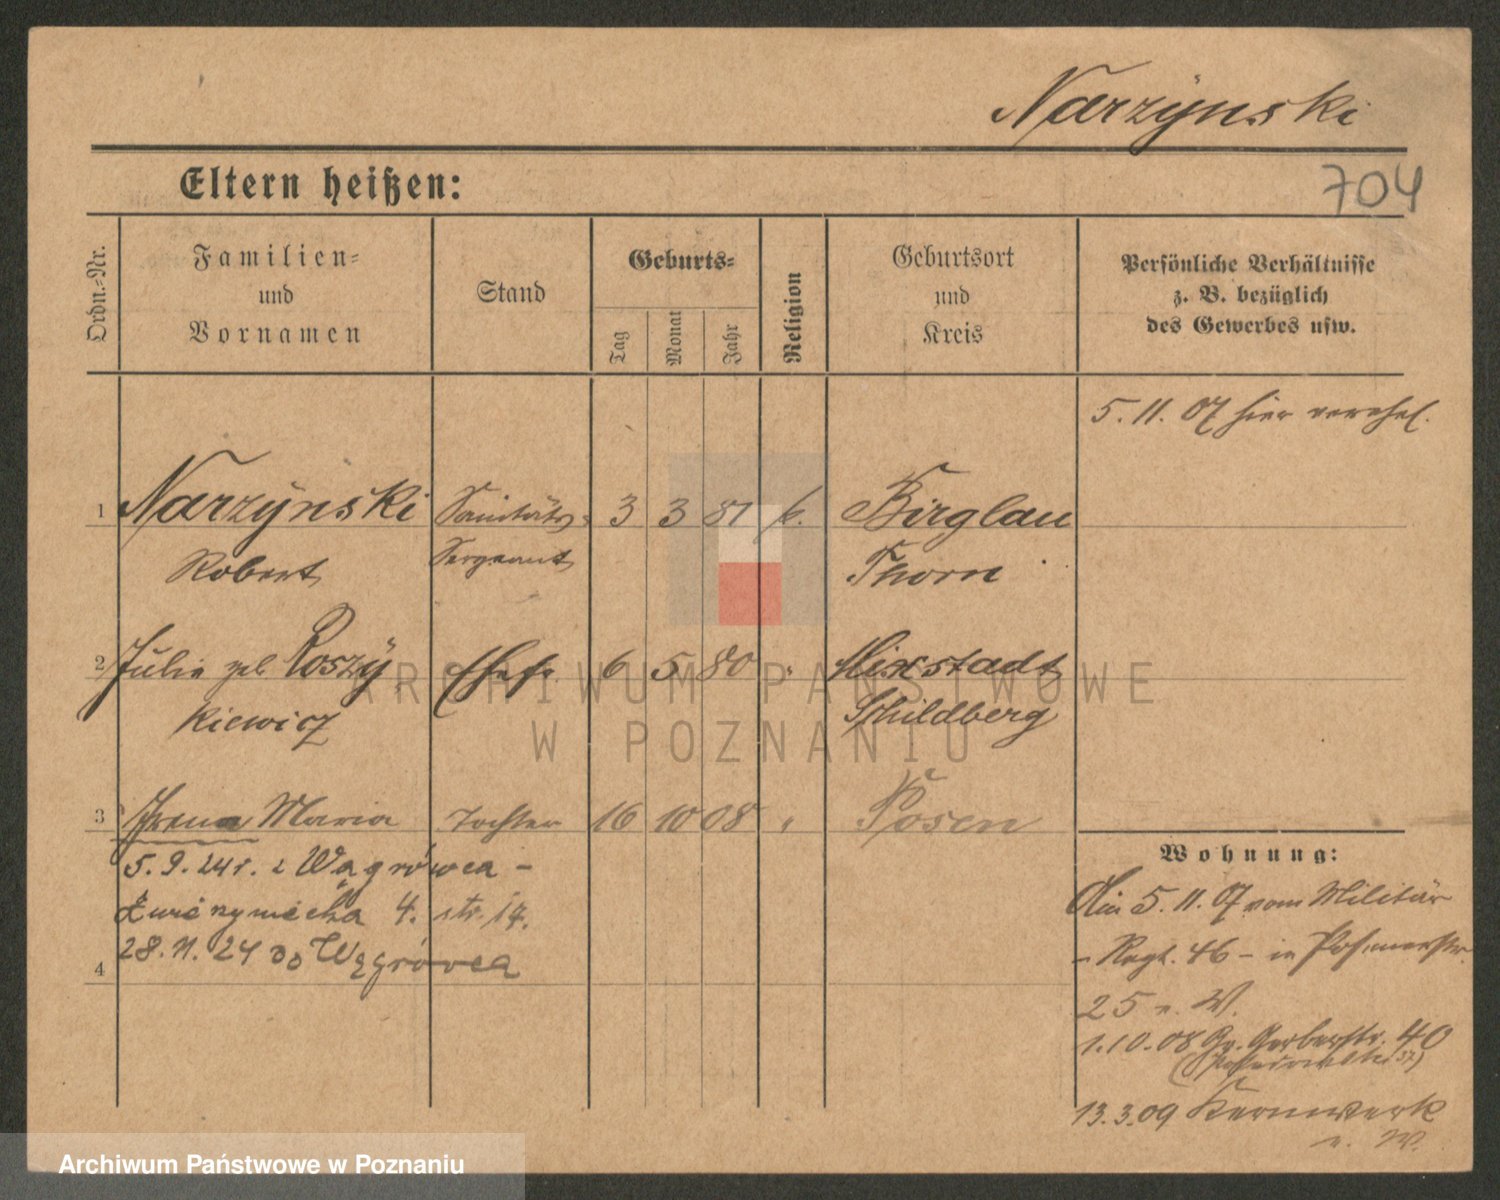 Narzÿnski
704
Eltern heißen:
Ordn.-Nr.
Familien-
und
Vornamen
Stand
Geburts-
Tag
Monat
Jahr
Religion
Geburtsort
und
Kreis
Persönliche Verhältnisse
z. B. bezüglich
des Gewerbes usw.
5. 11. 07 hier verehel.
1 Narzÿnski Sanitäts- 3 3 81 k. Birglau
Robert Sergeant Thorn
2 Julie geb Roszÿ Ehefr. 6 5 80 " Mixstadt
kiewicz Schildberg
3 Irena Maria Tochter 16 10 08 " Posen
5. 9. 24 r. z Wągrówca -
4. str. 17.
28. 11. 24 do Wągrówca
4
Wohnung:
5. 11. 07 vom Militär
- Regt. 46 - in
25 n. W.
1. 10. 08 Gr. Gerberstr. 40
13. 3. 09 Kernwerk
n. W.
ARCHIWUM PAŃSTWOWE
W POZNANIU
Archiwum Państwowe w Poznaniu